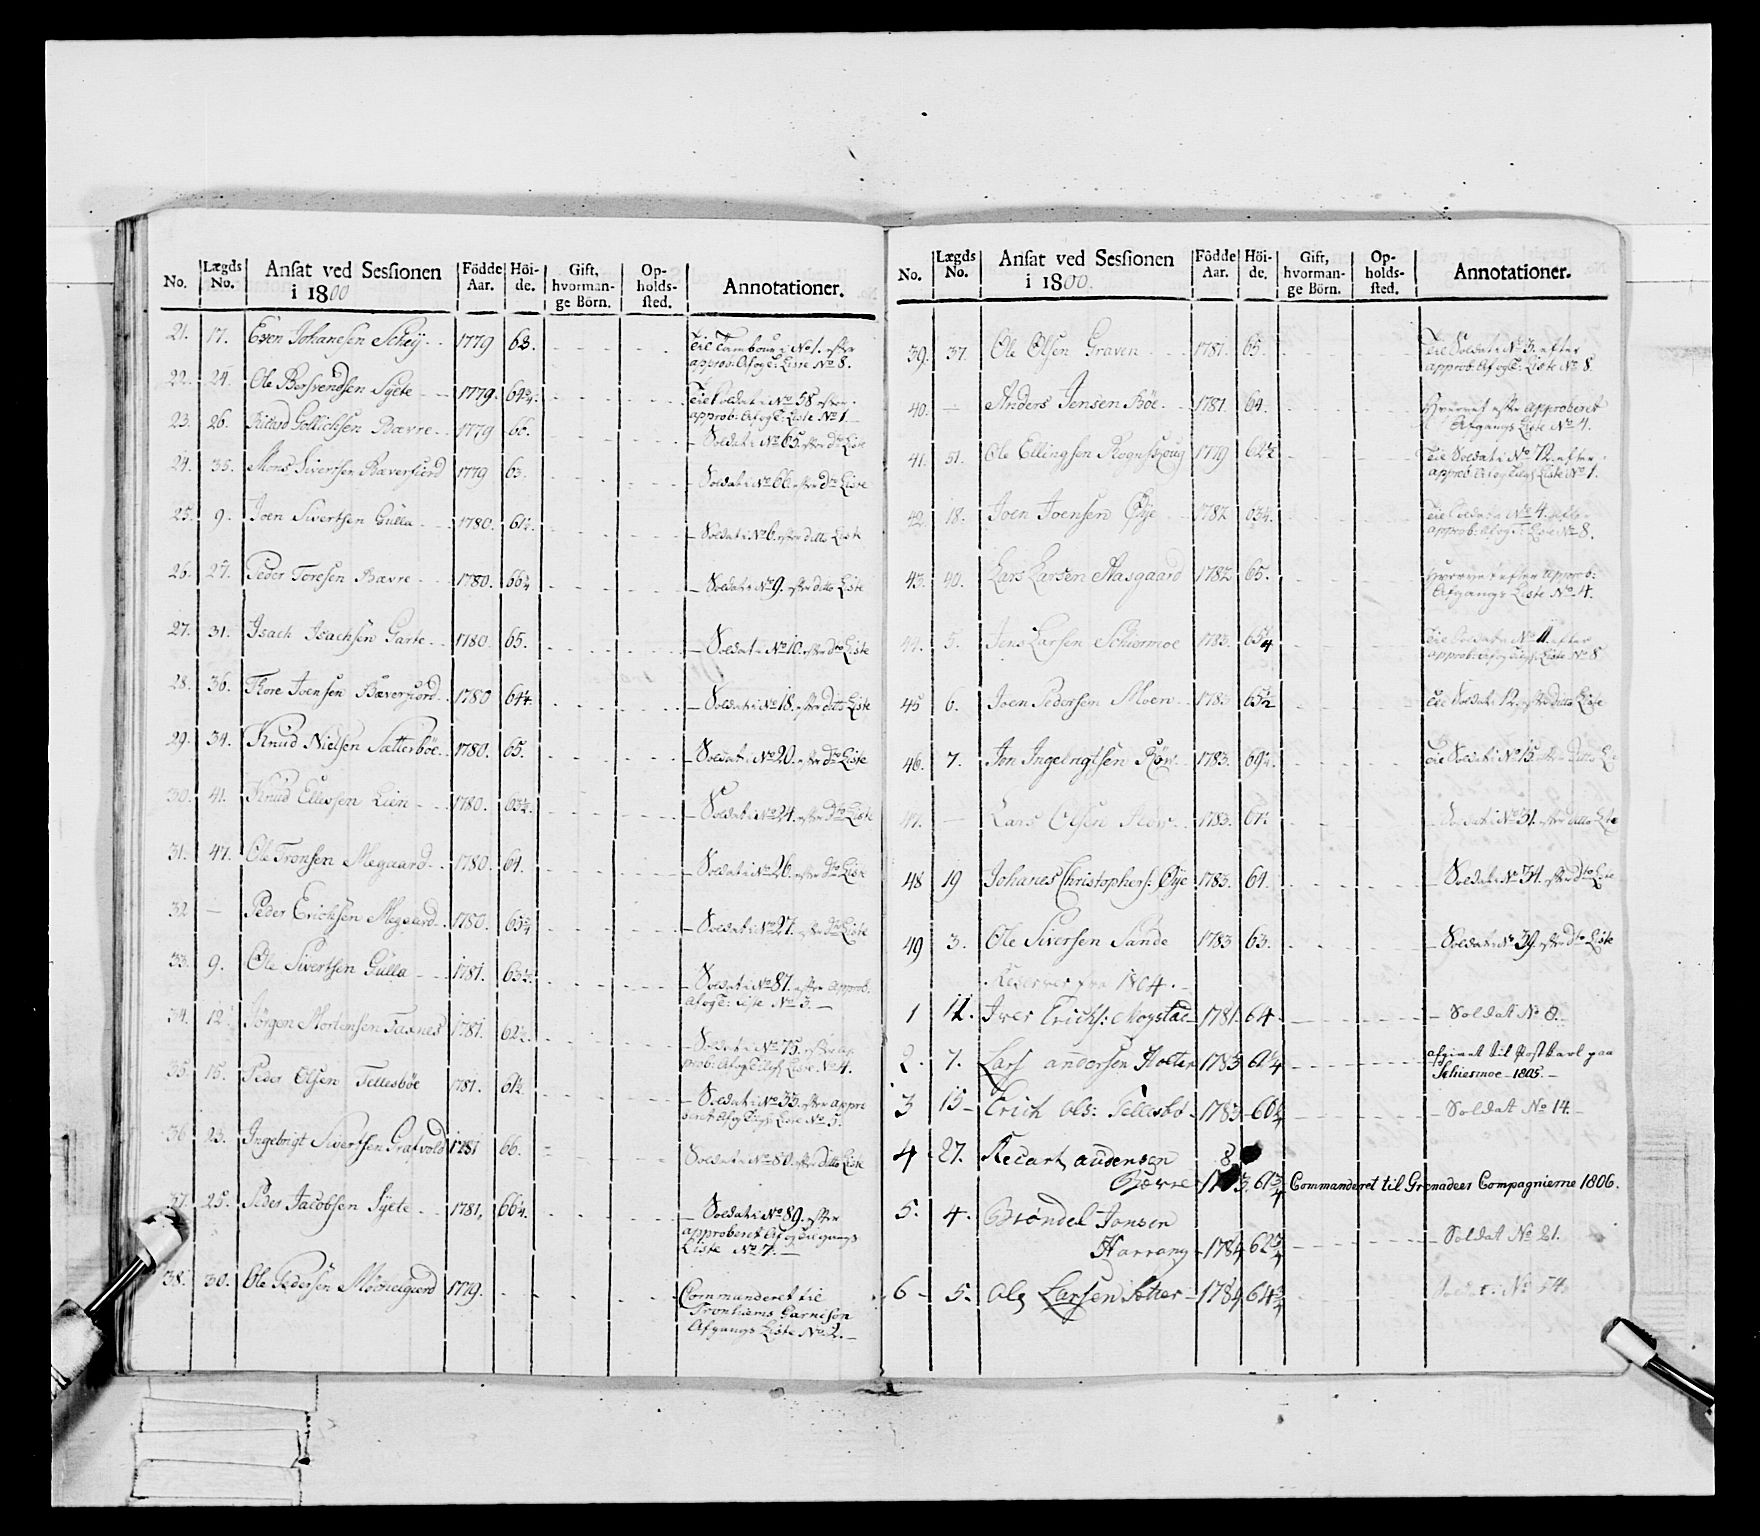 No. Lægds No. Ansat ved Sessionen i 1800 Födde Aar. Höi- de. Gift, hvorman- ge Börn. Op- holds- sted. Annotationer.
21. 17. Esen Johanesen Scheÿ 1779 63. Til Tambour i No 1. efter
approb: Afg: Liste No 8.
22. 24. Ole Bersvendsen Syete 1779. 64 3/4. Til Soldat i No 58 efter
approb: Afg: Liste No 1.
23. 26. Gollichsen Bævre 1779 66. Soldat i No 65. efter dto Liste
24. 35. Mons Sivertsen Bæverfiord 1779 63. Soldat i No 66. efter dto Liste
25. 9. Joen Sivertsen Gulla 1780. 61 1/2. Soldat i No 6. efter ditto Liste
26. 27. Peder Toresen Bævre 1780. 66 1/4 Soldat i No 9. efter ditto Liste
27. 31. Isach Isachsen Garte 1780 65. Soldat i No 10. efter dto Liste
28. 36. Thore Joensen Bæverfiord 1780 64 1/4. Soldat i No 18. efter ditto Liste
29. 34. Knud Nielsen Sætterböe 1780. 65. Soldat i No 20. efter dto Liste
30. 41. Knud Ellefsen Lien 1780. 63 1/2. Soldat i No 24. efter dto Liste
31. 47. Ole Tronsen Megaard 1780. 64. Soldat i No 26. efter dto Liste
32 — Peder Erichsen Megaard 1780. 63 3/4 Soldat i No 27. efter dto Liste
33. 9. Ole Sivertsen Gulla 1781. 63 1/2. Soldat i No 87. efter approb.
Afg: Liste No 3.
34. 12. Jörgen Mortensen Fasnes 1781. 62 1/2. Soldat i No 75. efter ap-
prob: Liste No 4.
35. 15. Peder Olsen Tellesböe 1781. 61 1/2. Soldat i No 33. efter appro-
beret Liste No 5.
36. 23. Ingebrigt Sivertsen Grafvold 1781 66. Soldat i No 80. efter ditto Liste
37. 25. Peder Jacobsen Syete 1781. 66 1/4. Soldat i No 89. efter
approberet Afgangs
Liste No 7.
38. 30. Ole Pedersen 1779. Commanderet til
Tronhiems Garnison
Afgangs Liste No 2.
No. Lægds No. Ansat ved Sessionen i 1800. Födde Aar. Höi- de. Gift, hvorman- ge Börn. Op- holds- sted. Annotationer.
39. 37. Ole Olsen Graven 1781. 65. Til Soldat i No 3. efter
approb: Afg: Liste No 8.
40. — Anders Jensen Böe 1781. 64. Hvervet efter approberet
Afgangs Liste No 4.
41. 51. Ole Ellingsen 1779 62 1/2 Til Soldat i No 72. efter
approb: Liste No 1.
42 18. Joen Joensen Øye 1782 63 1/4. Til Soldat i No 4. efter
approb: Afg: Liste No 8.
43. 40. Lars Larsen Aasgaard 1782 65. Hvervet efter approb:
Afgangs Liste No 4.
44. 5. Jens Larsen Schiermoe 1783. 65 1/4 Til Soldat i No 11. efter
approb: Liste No 8
45 6. Joen Pedersen Moen 1783 65 1/2 Til Soldat i 12. efter ditto Liste
46. 7. Jon Ingebrigtsen Röv 1783. 69 1/4. Til Soldat i No 15. efter ditto Li
47. — Lars Olsen Röv 1783. 67. Soldat i No 31. efter ditto Liste
48 19 Johanes Christophers: Øye 1783. 64. Soldat i No 34. efter dto Liste
49 3. Ole Siversen Sande 1783 63. Soldat i No 39. efter dto Liste
Reserver fra 1804.
1 11. Iver Erichs: Mogstad 1781 64 Soldat No 8.
2. 7. Lars andersen Holten 1783 61 1/4 afgivet til Postkarl paa
Schiermoe 1805.
3 15 Erich Ols: Tellesbö 1783 60 3/4 Soldat No 14.
4 27. Recart audensen 8
Bævre 1783. 61 3/4 Commanderet til Grenadeer Compagnierne 1806.
5. 4. Brøndel Jonsen
Harrang 1784 62 3/4 Soldat No 21.
6 5. Ole Larsen Sæther 1784 64 3/4 Soldat i No 54.